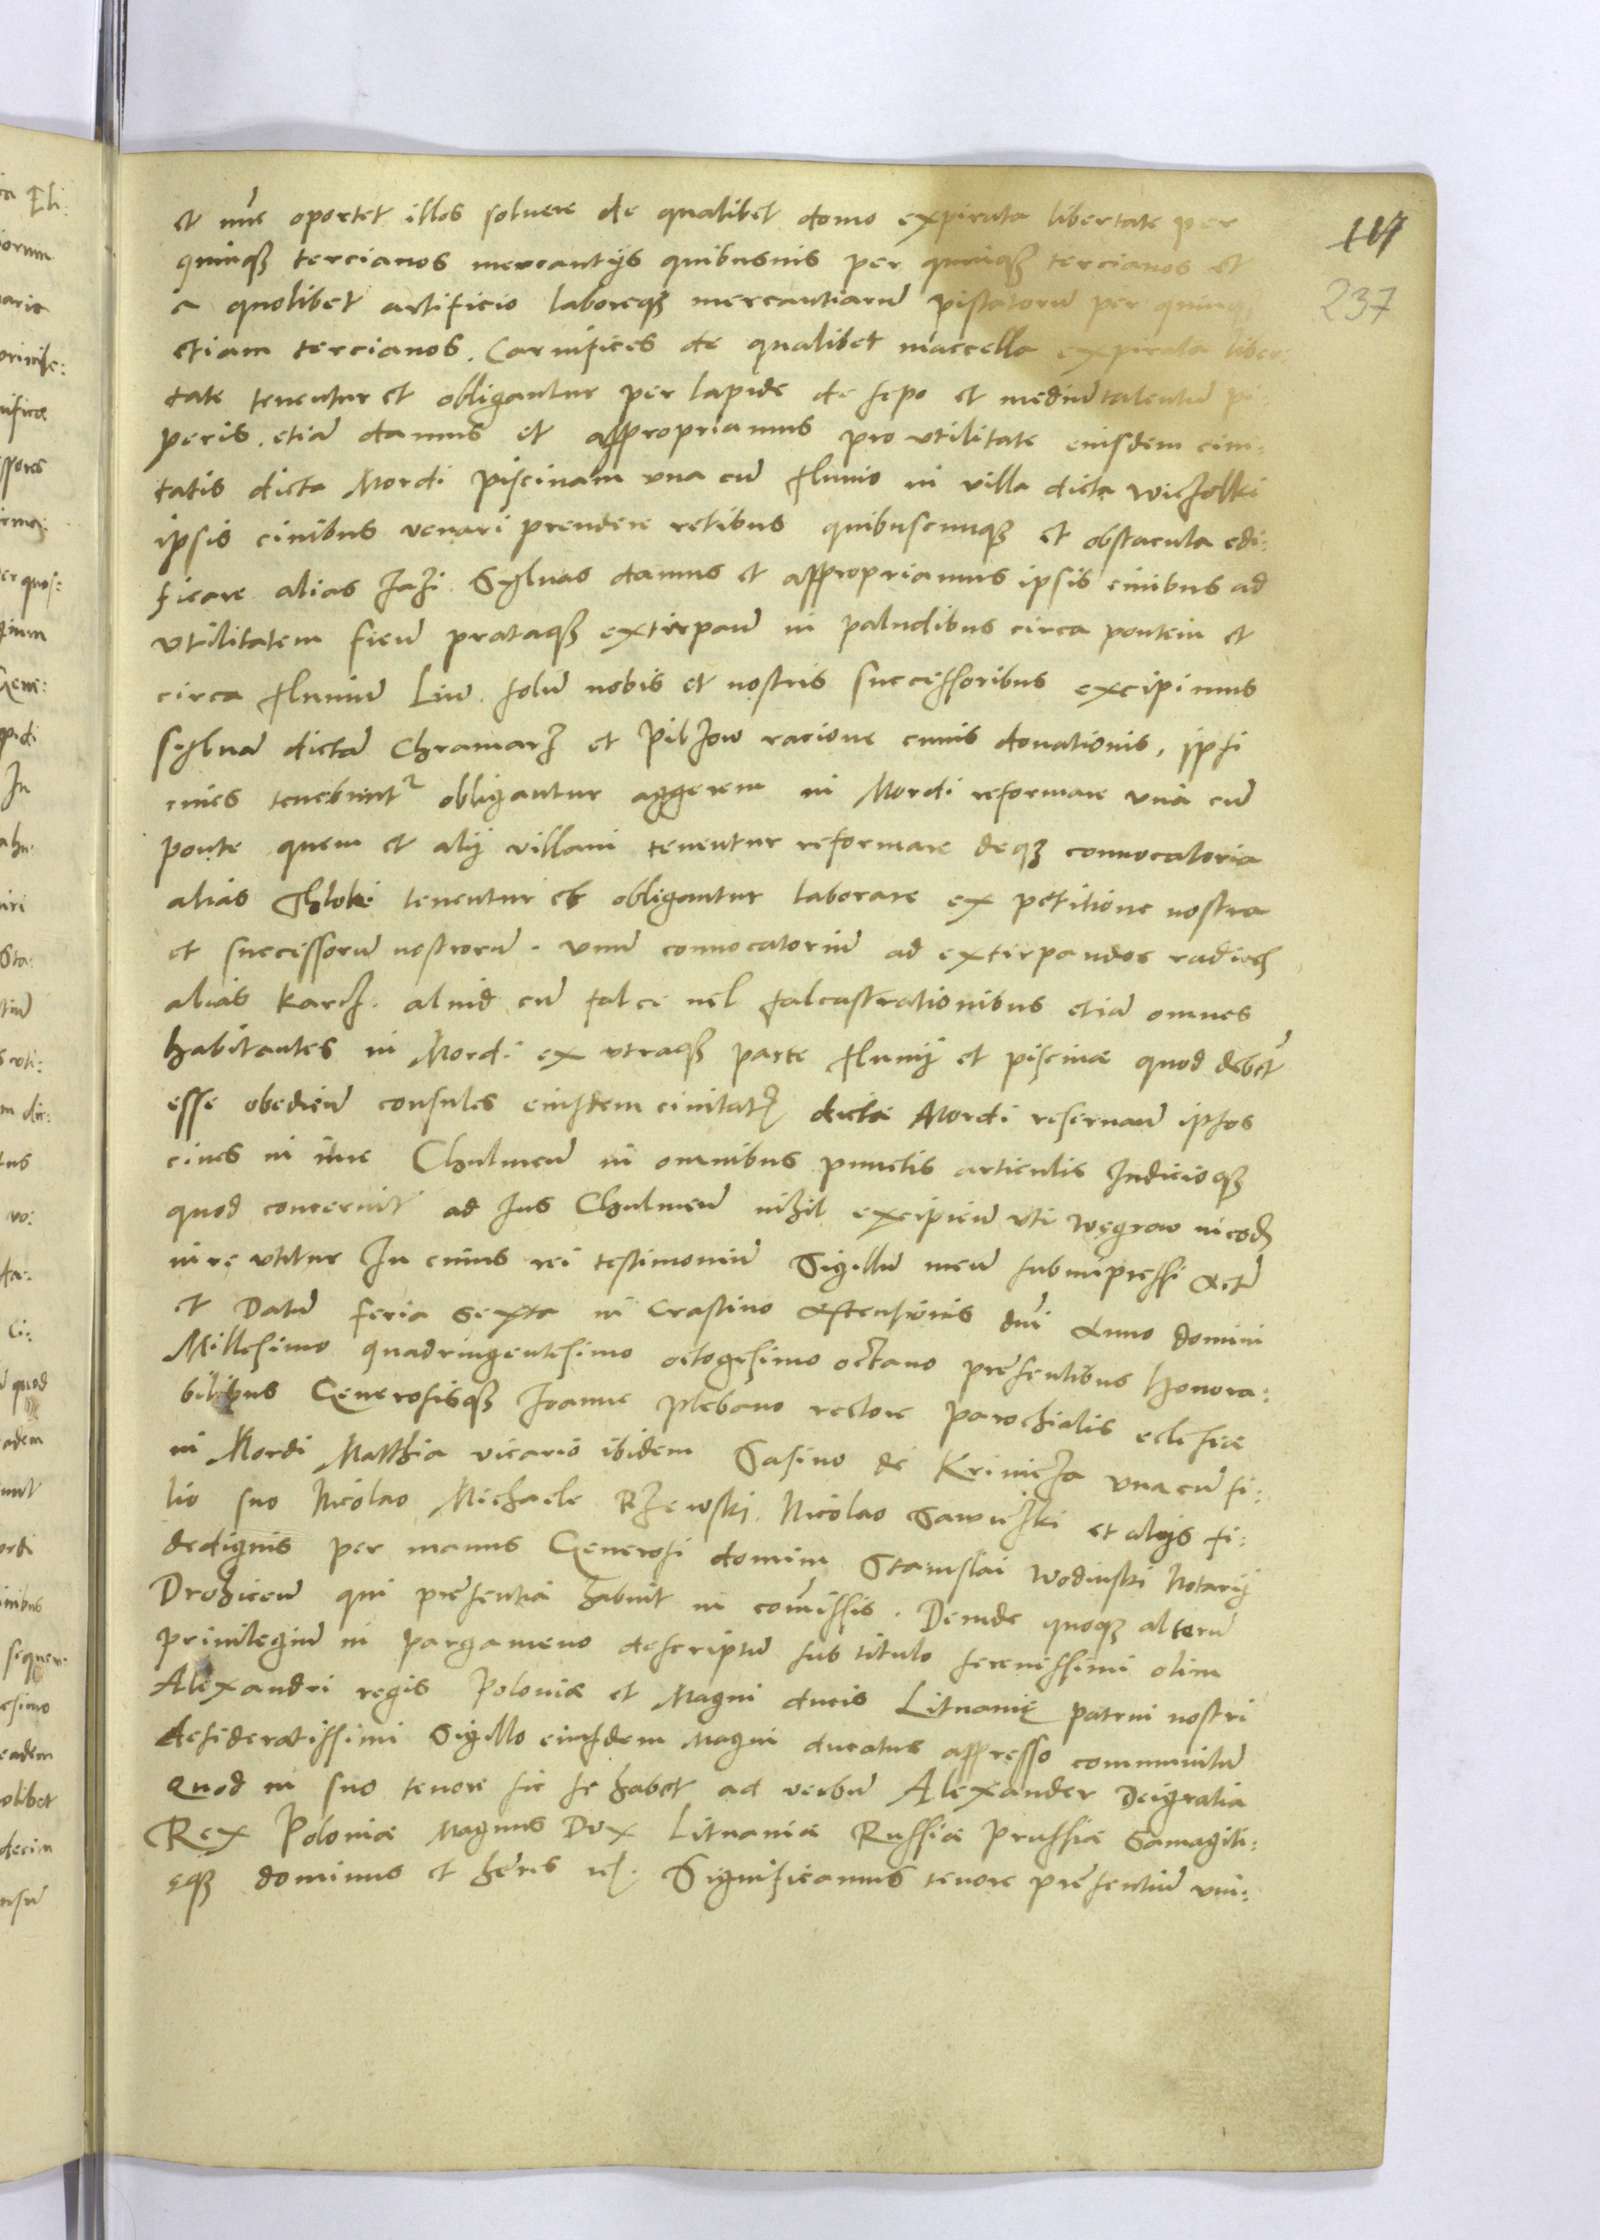 et nūc oportet illos soluere de qualibet domo expirata libertate per
quinqȝ tercianos mercantijs quibusuis per quinqȝ tercianos et
a quolibet artificio laboreqȝ mercantiarū pistatorū per quinqȝ
etiam tercianos. Carnifices de qualibet maccella expirata liber:
tate tenentur et obligantur per lapidē de sepo et mediū talentū pi:
peris. etiā damus et appropriamus pro vtilitate eiusdem ciui:
tatis dicta Mordi piscinam vna cū fluuio in villa dicta
ipsis ciuibus venari prendere retibus quibuscunqȝ et obstacula edi:
ficare alias Jazi. Syluas damus et appropriamus ipsis ciuibus ad
vtilitatem fieñ prataqȝ extirpañ in paludibus circa pontem et
circa fluuiū Liw. solū nobis et nostris successoribus excipimus
syluā dictā Chramarz et Pilzow racione cuiuis donationis, ipsi
ciues tenebuntr obligantur aggerem in Mordi reformare vna cū
ponte quem et alij villani tenentur reformare deqȝ conuocatoria
alias thloki tenentur et obligantur laborare ex petitione nostra
et successorū nostrorū. vnū conuocatoriū ad extirpandos radices
alias karcz. aliud cū falce uel falcastrationibus etiā omnes
habitantes in Mordi ex vtraqȝ parte fluuij et piscinæ quod debet
esse obedieñ consules eiusdem ciuitatis dictæ Mordi reseruañ ipsos
ciues in iure Chulmeñ in omnibus punctis articulis Judicioqȝ
quod concernit ad Jus Chulmeñ nihil excipieñ vti Węgrow in eodē
iure vtitur In cuius rei testimoniū Sigillū meū subimpressi Actū
et Datū feria sexta in Crastino Ascensionis dñi Anno domini
Millesimo quadringentesimo octogesimo octauo presentibus Honora:
bilibus Generosisqȝ Joanne plebano rectore parochialis eclesiæ
in Mordi Matthia vicario ibidem Sasino de Krinicza vna cū fi:
lio suo Nicolao Michaele Rzewski. Nicolao Sawiczki et alijs fi:
dedignis per manus Generosi domini Stanislai Wodinski Notarij
Drohiceñ qui presentiā habuit in cōmissis. Deinde quoqȝ alterū
priuilegiū in pargameno descriptū sub titulo serenissimi olim
Alexandri regis Poloniæ et Magni ducis Lituaniæ patrui nostri
desideratissimi Sigillo eiusdem Magni ducatus appresso communitū
Quod in suo tenore sic se habet ad verbū Alexander Dei gratia
Rex Poloniæ Magnus Dux Lituaniæ Russiæ Prussiæ Samagiti:
ęqȝ dominus et heres etc. Significamus tenore presentiū vni:
117
237